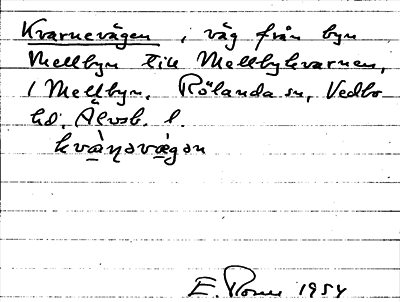 Kvarnevägen, väg från byn
Mellbyn till Mellbykvarnen,
i Mellbyn. Rölanda sn, Vedbo
hd, Älvsb. l.
kvàṇəvǽgən
E. 1954